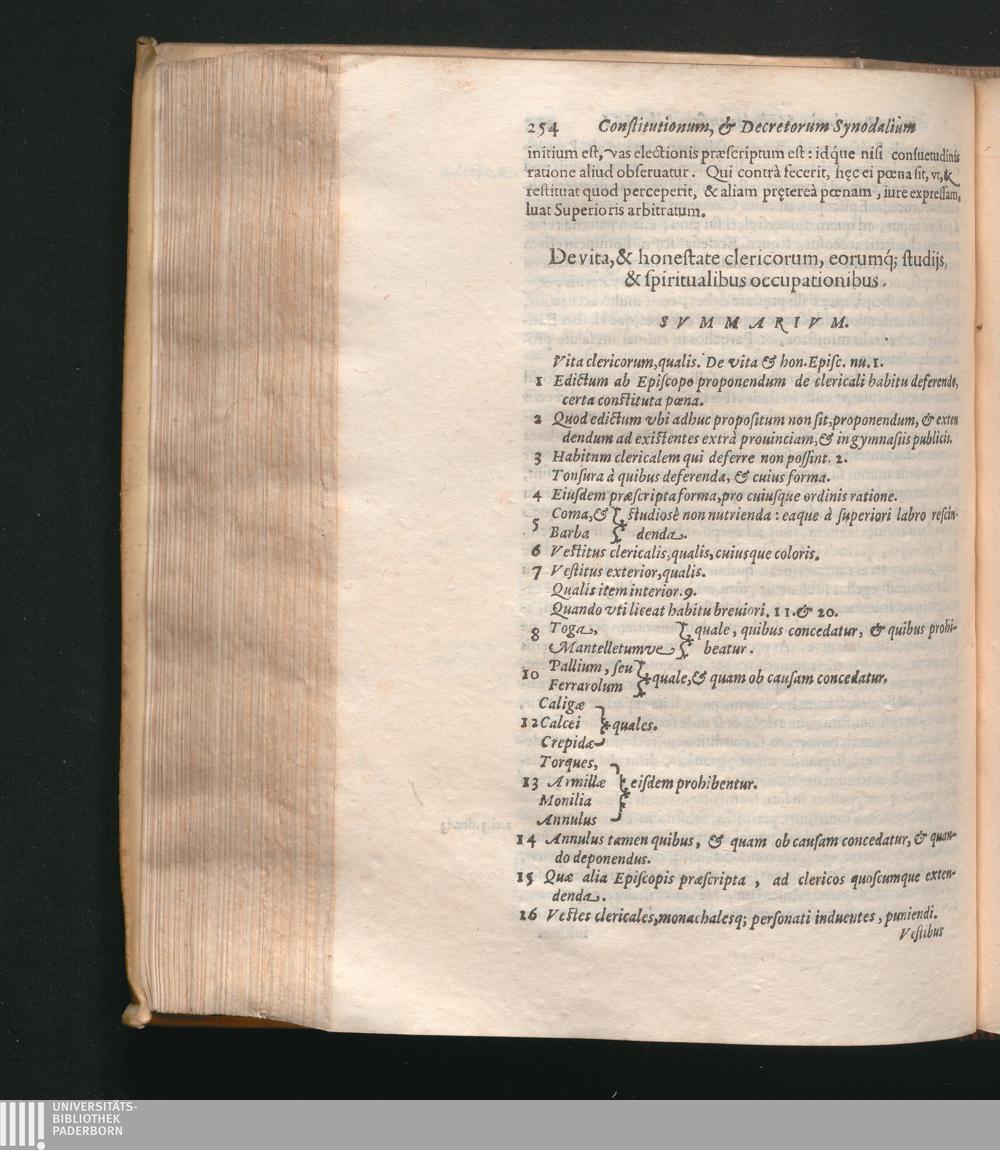 254 Conſtitutionum, & Decretorum Synodalium
initium eſt, vas electionis præſcriptum eſt: idq́ue niſi conſuetudinis
ratione aliud obſeruatur. Qui contrà fecerit, hęc ei pœna ſit, vt, &
reſtituat quod perceperit, & aliam pręterea pœnam, iure expreſſam,
luat Superioris arbitratum.
De vita, & honeſtate clericorum, eorumq́; ſtudijs,
& ſpiritualibus occupationibus.
SVMMARIVM.
Vita clericorum, qualis. De vita & hon. Epiſc. nu. 1.
1 Edictum ab Epiſcopo proponendum de clericali habitu deferendo,
certa conſtituta pœna.
2 Quod edictum vbi adhuc propoſitum non ſit, proponendum, & exten
dendum ad exiſtentes extrà prouinciam, & in gymnaſiis publicis.
3 Habitnm clericalem qui deferre non poſſint. 2.
Tonſura à quibus deferenda, & cuius forma.
4 Eiuſdem præſcripta forma, pro cuiuſque ordinis ratione.
5 Coma, & } ſtudiosè non nutrienda: eaque à ſuperiori labro reſcin-
Barba } denda.
6 Veſtitus clericalis, qualis, cuiusque coloris.
7 Veſtitus exterior, qualis.
Qualis item interior. 9.
Quando vti liceat habitu breuiori. 11. & 20.
8 Toga, } quale, quibus concedatur, & quibus prohi-
Mantelletumve } beatur.
10 Pallium, ſeu } quale, & quam ob cauſam concedatur.
Ferrarolum
Caligæ
12 Calcei } quales.
Crepidæ
Torques,
13 Armillæ } eiſdem prohibentur.
Monilia
Annulus
14 Annulus tamen quibus, & quam ob cauſam concedatur, & quan-
do deponendus.
15 Quæ alia Epiſcopis præſcripta, ad clericos quoſcumque exten-
denda.
16 Veſtes clericales, monachalesq; perſonati induentes, puniendi.
Veſtibus
UNIVERSITÄTS-
BIBLIOTHEK
PADERBORN